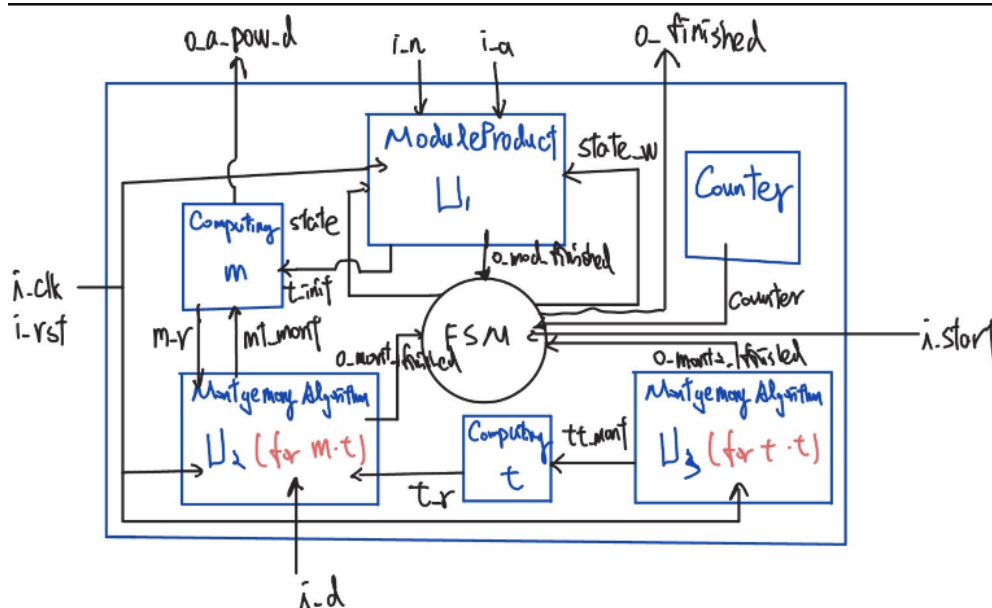 o_a_pow_d
i_n
i_a
o_finished
ModuleProduct
U1
state_w
Counter
Computing
m
state
o_mod_finished
t_init
i_clk
i_rst
m_r
mt_mont
FSM
counter
i_start
o_mont_finished
o_mont2_finished
Montgemory Algorithm
U2 (for m·t)
Computing
t
tt_mont
t_r
Montgemory Algorithm
U3 (for t·t)
i_d